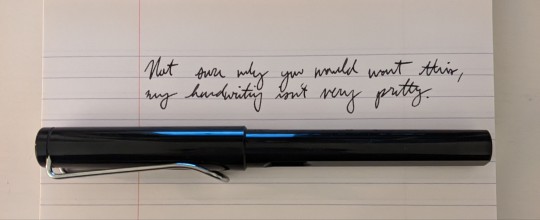 Not sure why you would want this,
my handwriting isn't very pretty.